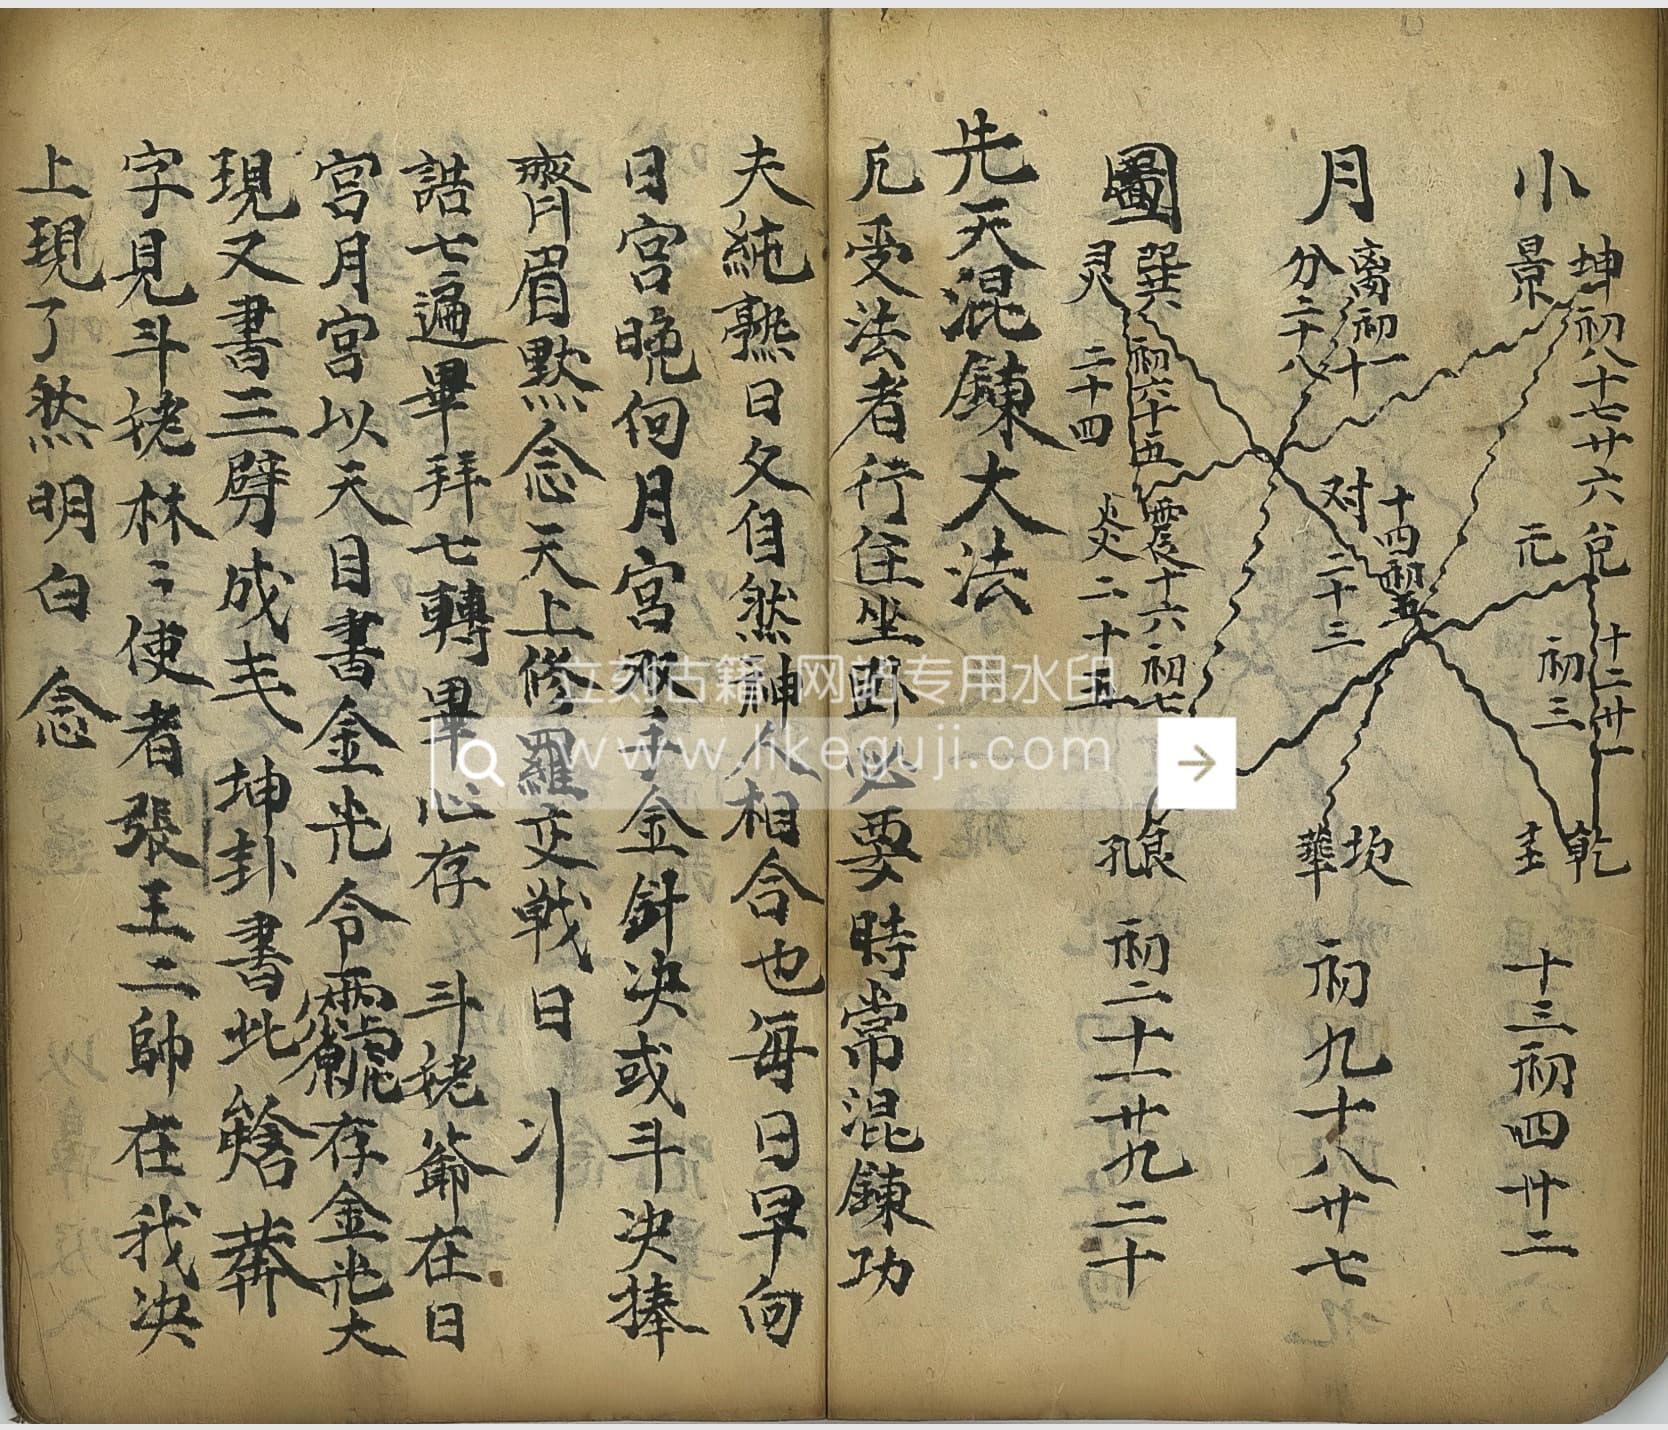 小
坤 初八 十七 廿六
景
兌 十二 廿一
元 初三
乾
十三 初四 廿二
月
离 初一 初十
分 二十八
十四 初五
对 二十三
坎
華
初九 十八 廿七
圖
巽 初六 十五
灵 二十四
震 十六 初七
炎 二十五
艮
孔
初二 十一 廿九 二十
先天混鍊大法
凡受法者行住坐卧必要時常混鍊功
夫純熟日久自然神人相合也每日早向
日宮晚向月宮双手金針决或斗决捧
齊眉默念天上修羅交戰日
誥七遍畢拜七轉畢心存 斗姥爺在日
宮月宮以天目書金光令 存金光大
現又書三劈成 坤卦書此
字見斗姥林〻使者張王二帥在我决
上現了然明白 念
立刻古籍 网站专用水印
www.likeguji.com